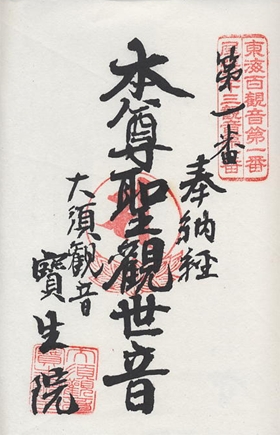 東海百觀音第一番
第一番
奉納経
本尊聖觀世音
大須観音
寳生院